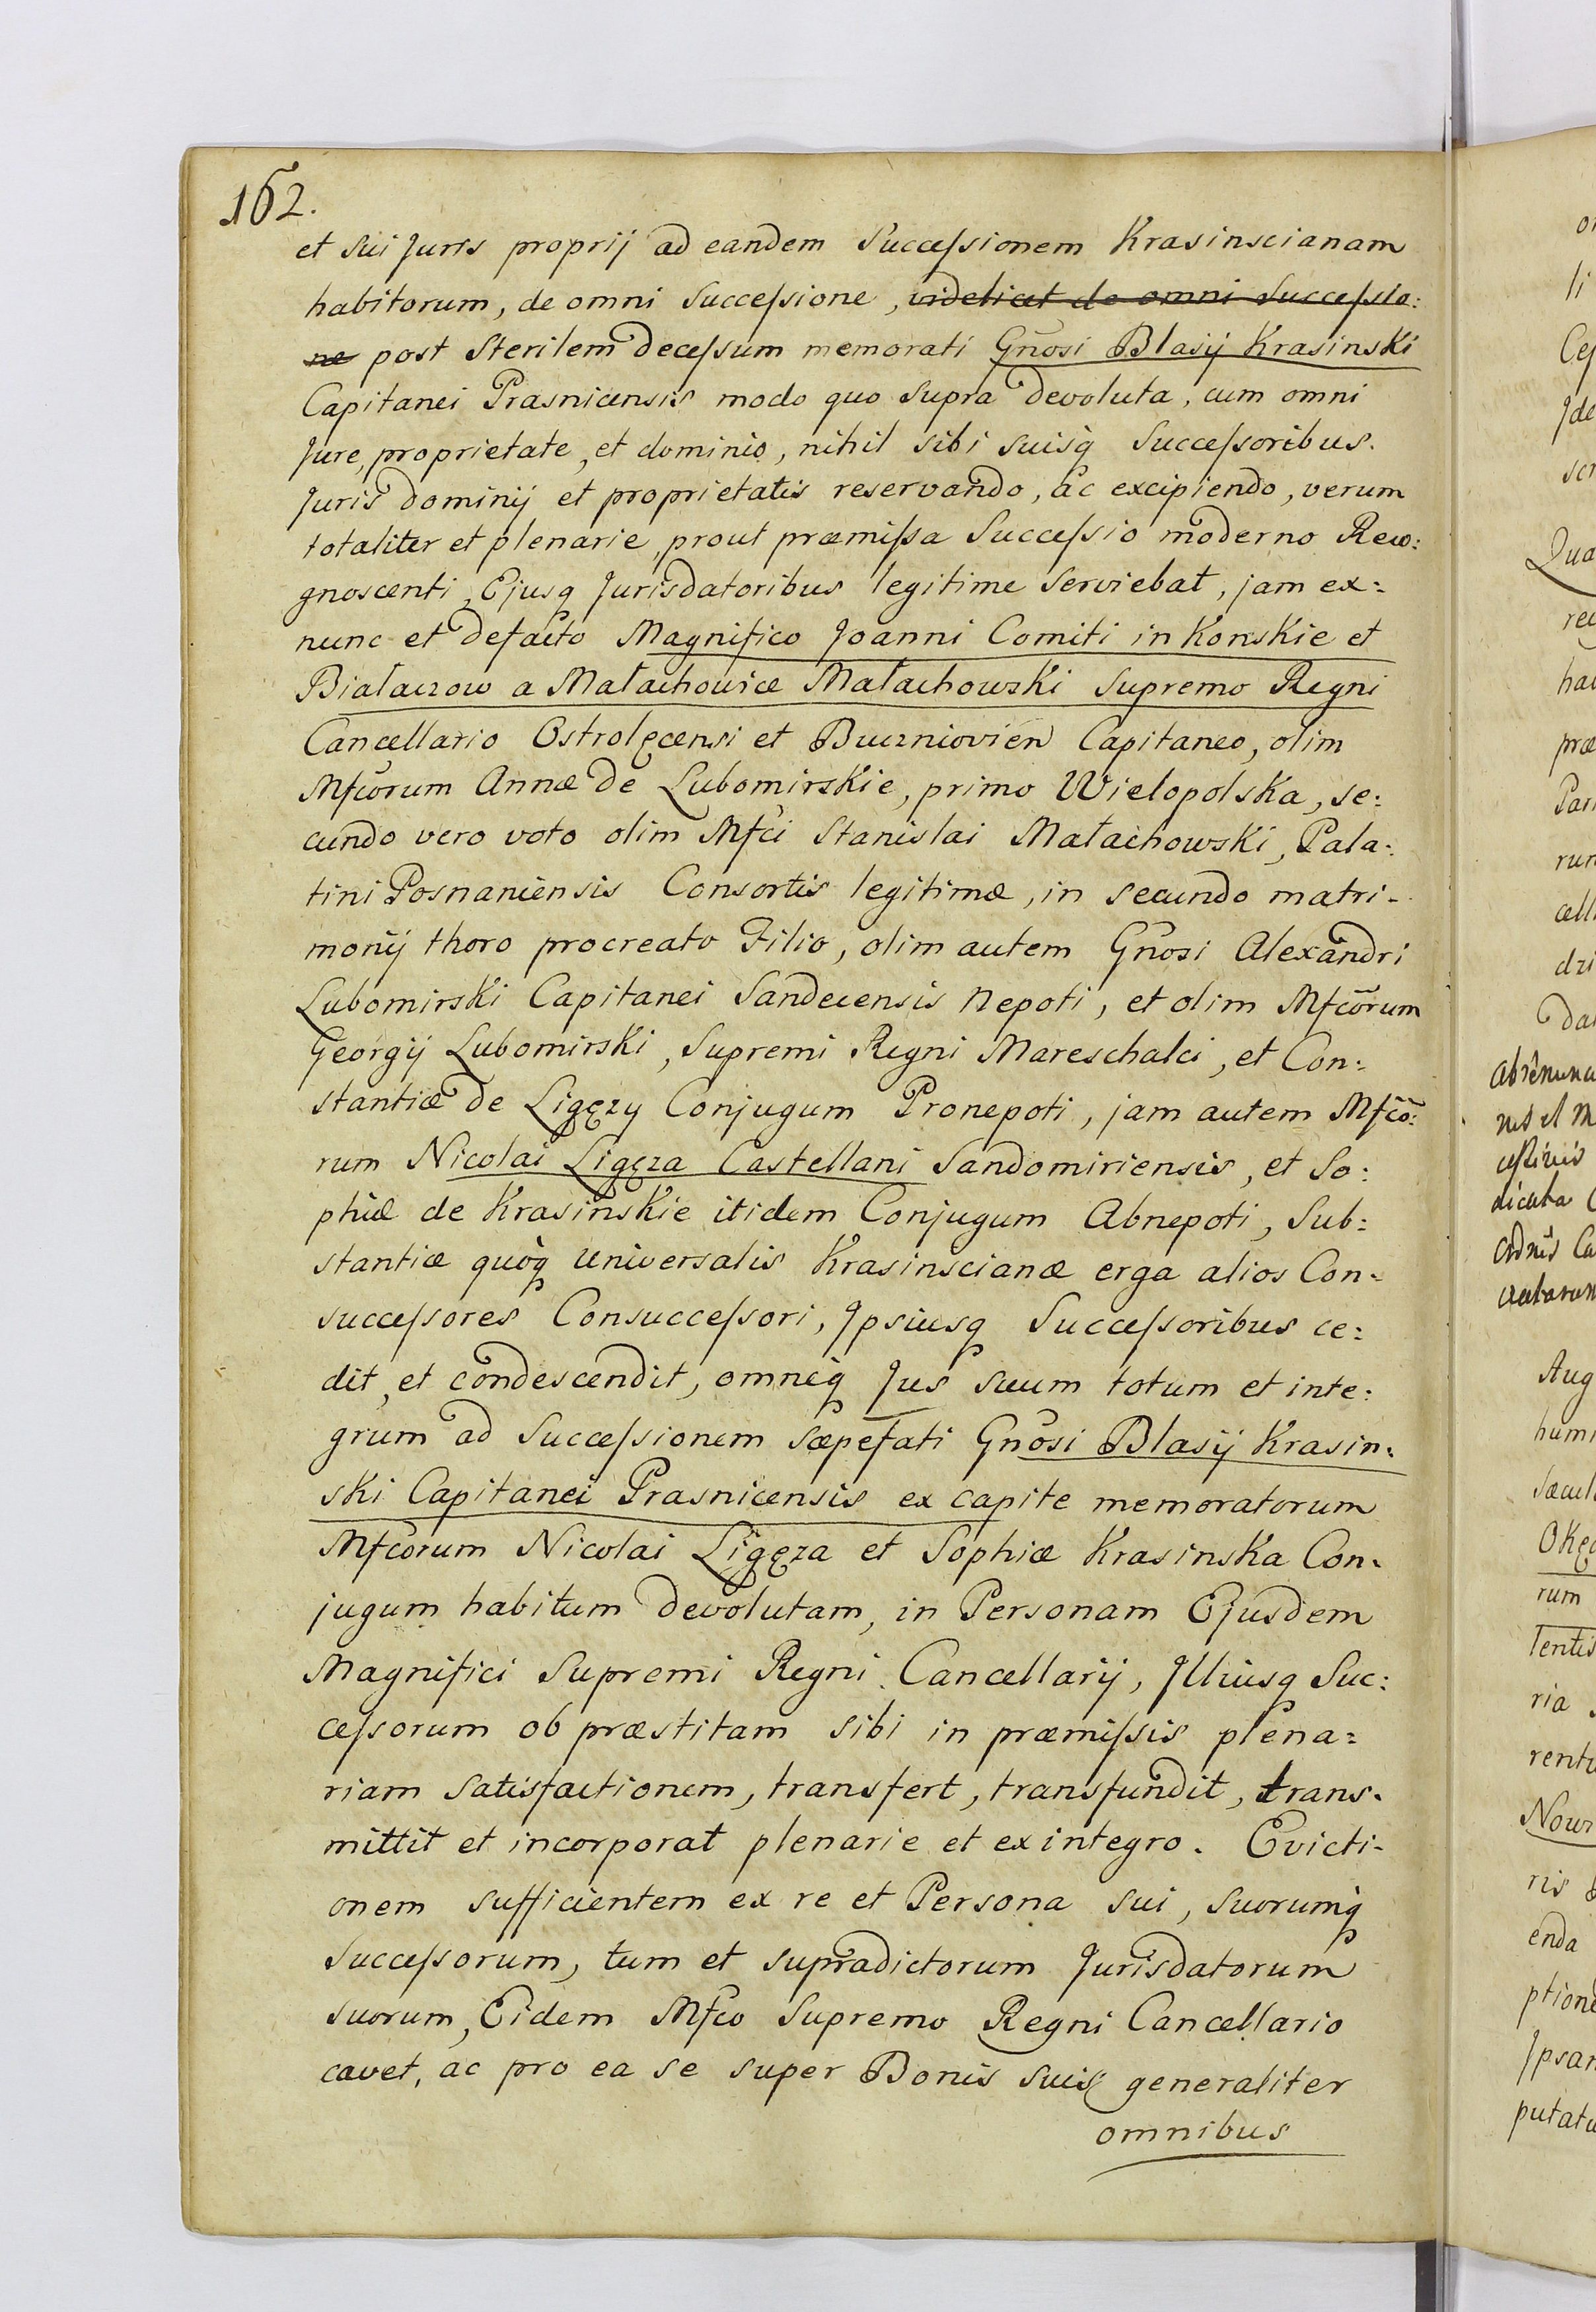 162.
et sui Juris proprij ad eandem Succeſsionem Krasinscianam
habitorum, de omni Succeſsione, videlicet de omni Succeſsio:
ne post Sterilem deceſsum memorati Gñosi Blasij Krasinski
Capitanei Prasnicensis modo quo Supra devoluta, cum omni
Jure, proprietate, et dominio, nihil sibi suisq Succeſsoribus
Juris dominij et proprietatis reservando, ac excipiendo, verum
totaliter et plenarie, prout præmiſsa Succeſsio moderno Reco:
gnoscenti, Ejusq Jurisdatoribus legitime Serviebat, jam ex=
nunc et defacto Magnifico Joanni Comiti in Konskie et
Białaczow a Małachowice Małachowski Supremo Regni
Cancellario Ostrolęcensi et Buczniovien Capitaneo, olim
Mfcorum Annæ de Lubomirskie, primo Wielopolska, se:
cundo vero voto olim Mfci Stanislai Małachowski, Pala:
tini Posnaniensis Consortis legitimæ, in secundo matri-
monij thoro procreato Filio, olim autem Gñosi Alexandri
Lubomirski Capitanei Sandecensis Nepoti, et olim Mfcõrum
Georgij Lubomirski, Supremi Regni Mareschalci, et Con:
stantiæ de Ligęzy Conjugum Pronepoti, jam autem Mfcõ:
rum Nicolai Ligęza Castellani Sandomiriensis, et So:
phiæ de Krasinskie itidem Conjugum Abnepoti, Sub:
stantiæ quoq universalis Krasinscianæ erga alios Con-
succeſsores Consucceſsori, Jpsiusq Succeſsoribus ce:
dit, et condescendit, omneq Jus suum totum et inte:
grum ad Succeſsionem sæpefati Gñosi Blasij Krasin-
ski Capitanei Prasnicensis ex capite memoratorum
Mfcorum Nicolai Ligęza et Sophiæ Krasinska Con-
jugum habitum devolutam, in Personam Ejusdem
Magnifici Supremi Regni Cancellarij, Jlliusq Suc:
ceſsorum ob præstitam sibi in præmiſsis plena=
riam satisfactionem, transfert, transfundit, trans-
mittit et incorporat plenarie et ex integro. Evicti-
onem sufficientem ex re et Persona sui, suorumq
Succeſsorum, tum et supradictorum Jurisdatorum
suorum, Eidem Mfco Supremo Regni Cancellario
cavet, ac pro ea se super Bonis suis generaliter
omnibus